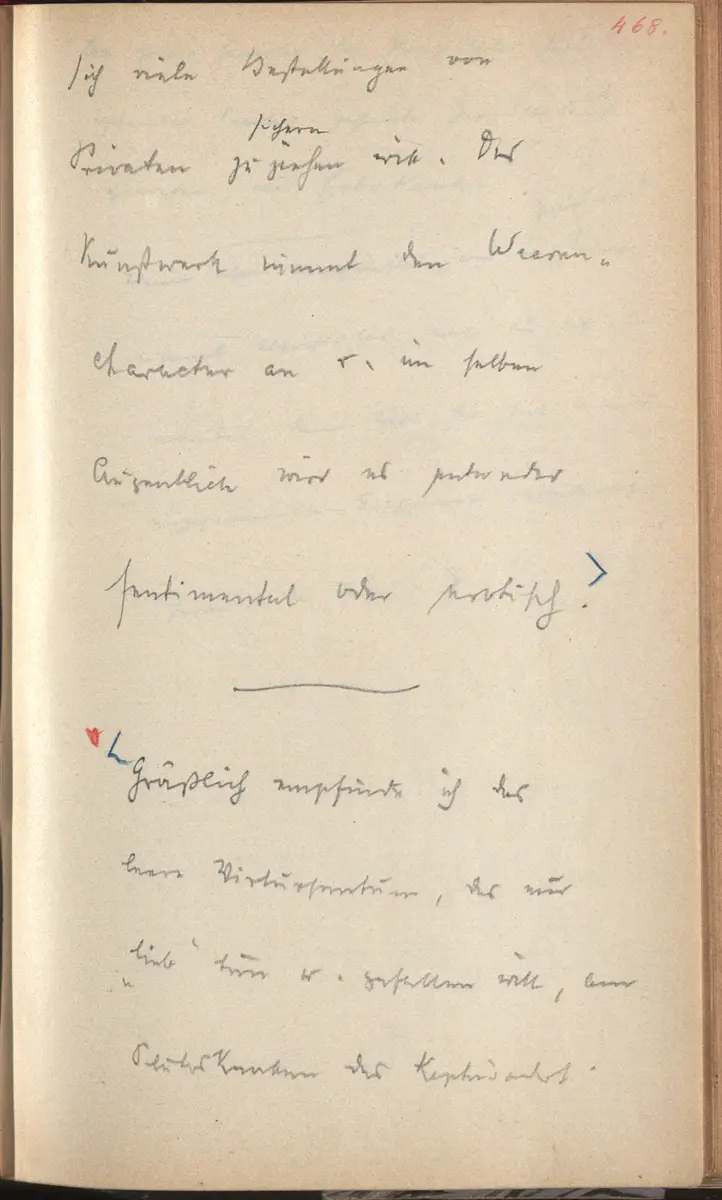 468.
sich viele Bestellungen von
sichern
Privaten zu ziehen will. Das
Kunstwerk nimmt den Waaren-
charakter an u. im selben
Augenblick wird es entweder
sentimental oder erotisch.
Gräßlich empfinde ich das
leere Virtuosentum, das nur
„lieb“ tun u. gefallen will,
des